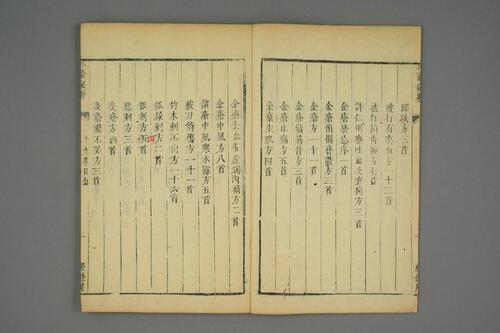 蹉跌方三首
被打有瘀血方一十三首
被打損青腫方七首
許仁則療吐血及墮損方三首
金瘡禁忌序一首
金瘡預備膏散方三首
金瘡續筋骨方三首
金瘡方一十一首
金瘡止痛方五首
金瘡生肌方四首
金瘡去血多虛竭內補方二首
金瘡中風方八首
諸瘡中風寒水露方五首
被刀箭傷方一十一首
竹木刺不出方一十六首
狐尿刺方二首
狐刺方五首
惡刺方三首
灸瘡方四首
灸瘡膿不差方三首